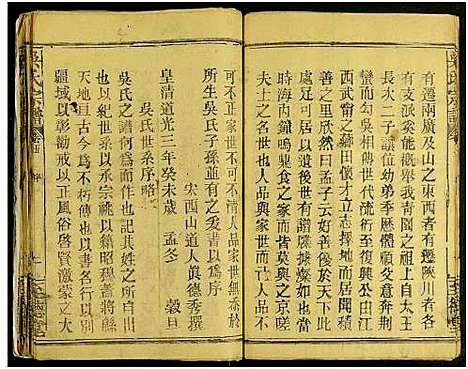 有遷兩廣及山之東西者有遷陝川者各
支派實姓能概舉我青閣之祖自太王
長次二子讓位幼弟季歷父意奔荆
蠻而号勾吳相傳世代流衍至復興公江
西武甯之麟田懷才立志躬耕田開積
善之里然則曰孟子云好善優於天下而
家世居於可以遺後世有讚辟㨿燦於
時海內鐘鳴鼎食之家而世居人品京嗟
夫士之人品也世人品與家世也
可不正家世不可不清人品家世無忝於
所生吳氏子孫並有之愛書以爲序
宋西山道人真德秀撰
皇清道光三年癸未歲孟冬穀旦
吳氏世系序略
吳氏之譜何爲而作也其姓之所自出
與紀世系以承宗祧以籍昭穆蓋將縣
天地亘古今爲不朽傳也以書名行以別
疆域以彰勸戒以正風俗啓賢激蒙之大
吳氏宗譜